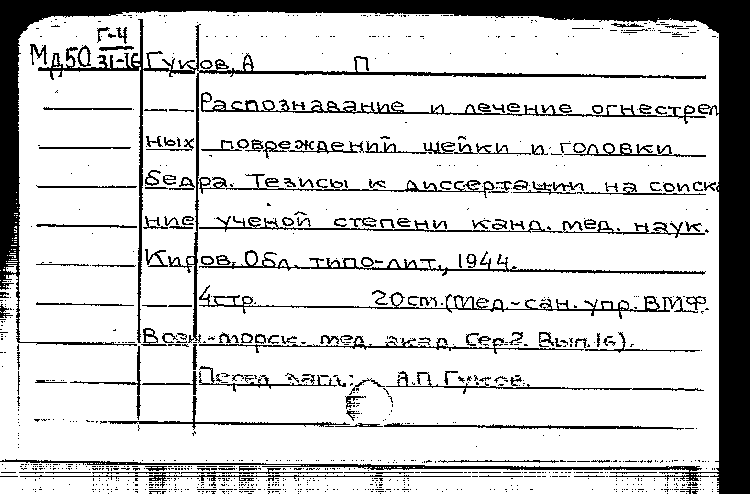 Г-4
Мд50 31-16 Гуков, А П
Распознавание и лечение огнестрел
ных повреждений шейки и головки
бедра. Тезисы к диссертации на соиска
ние ученой степени канд. мед. наук.
Киров, Обл. типо-лит., 1944.
4стр. 20см. (Мед.-сан. упр. ВМФ.
Воен.-морск. мед. акад. Сер.2. Вып.16).
Перед загл.: А.П. Гуков.